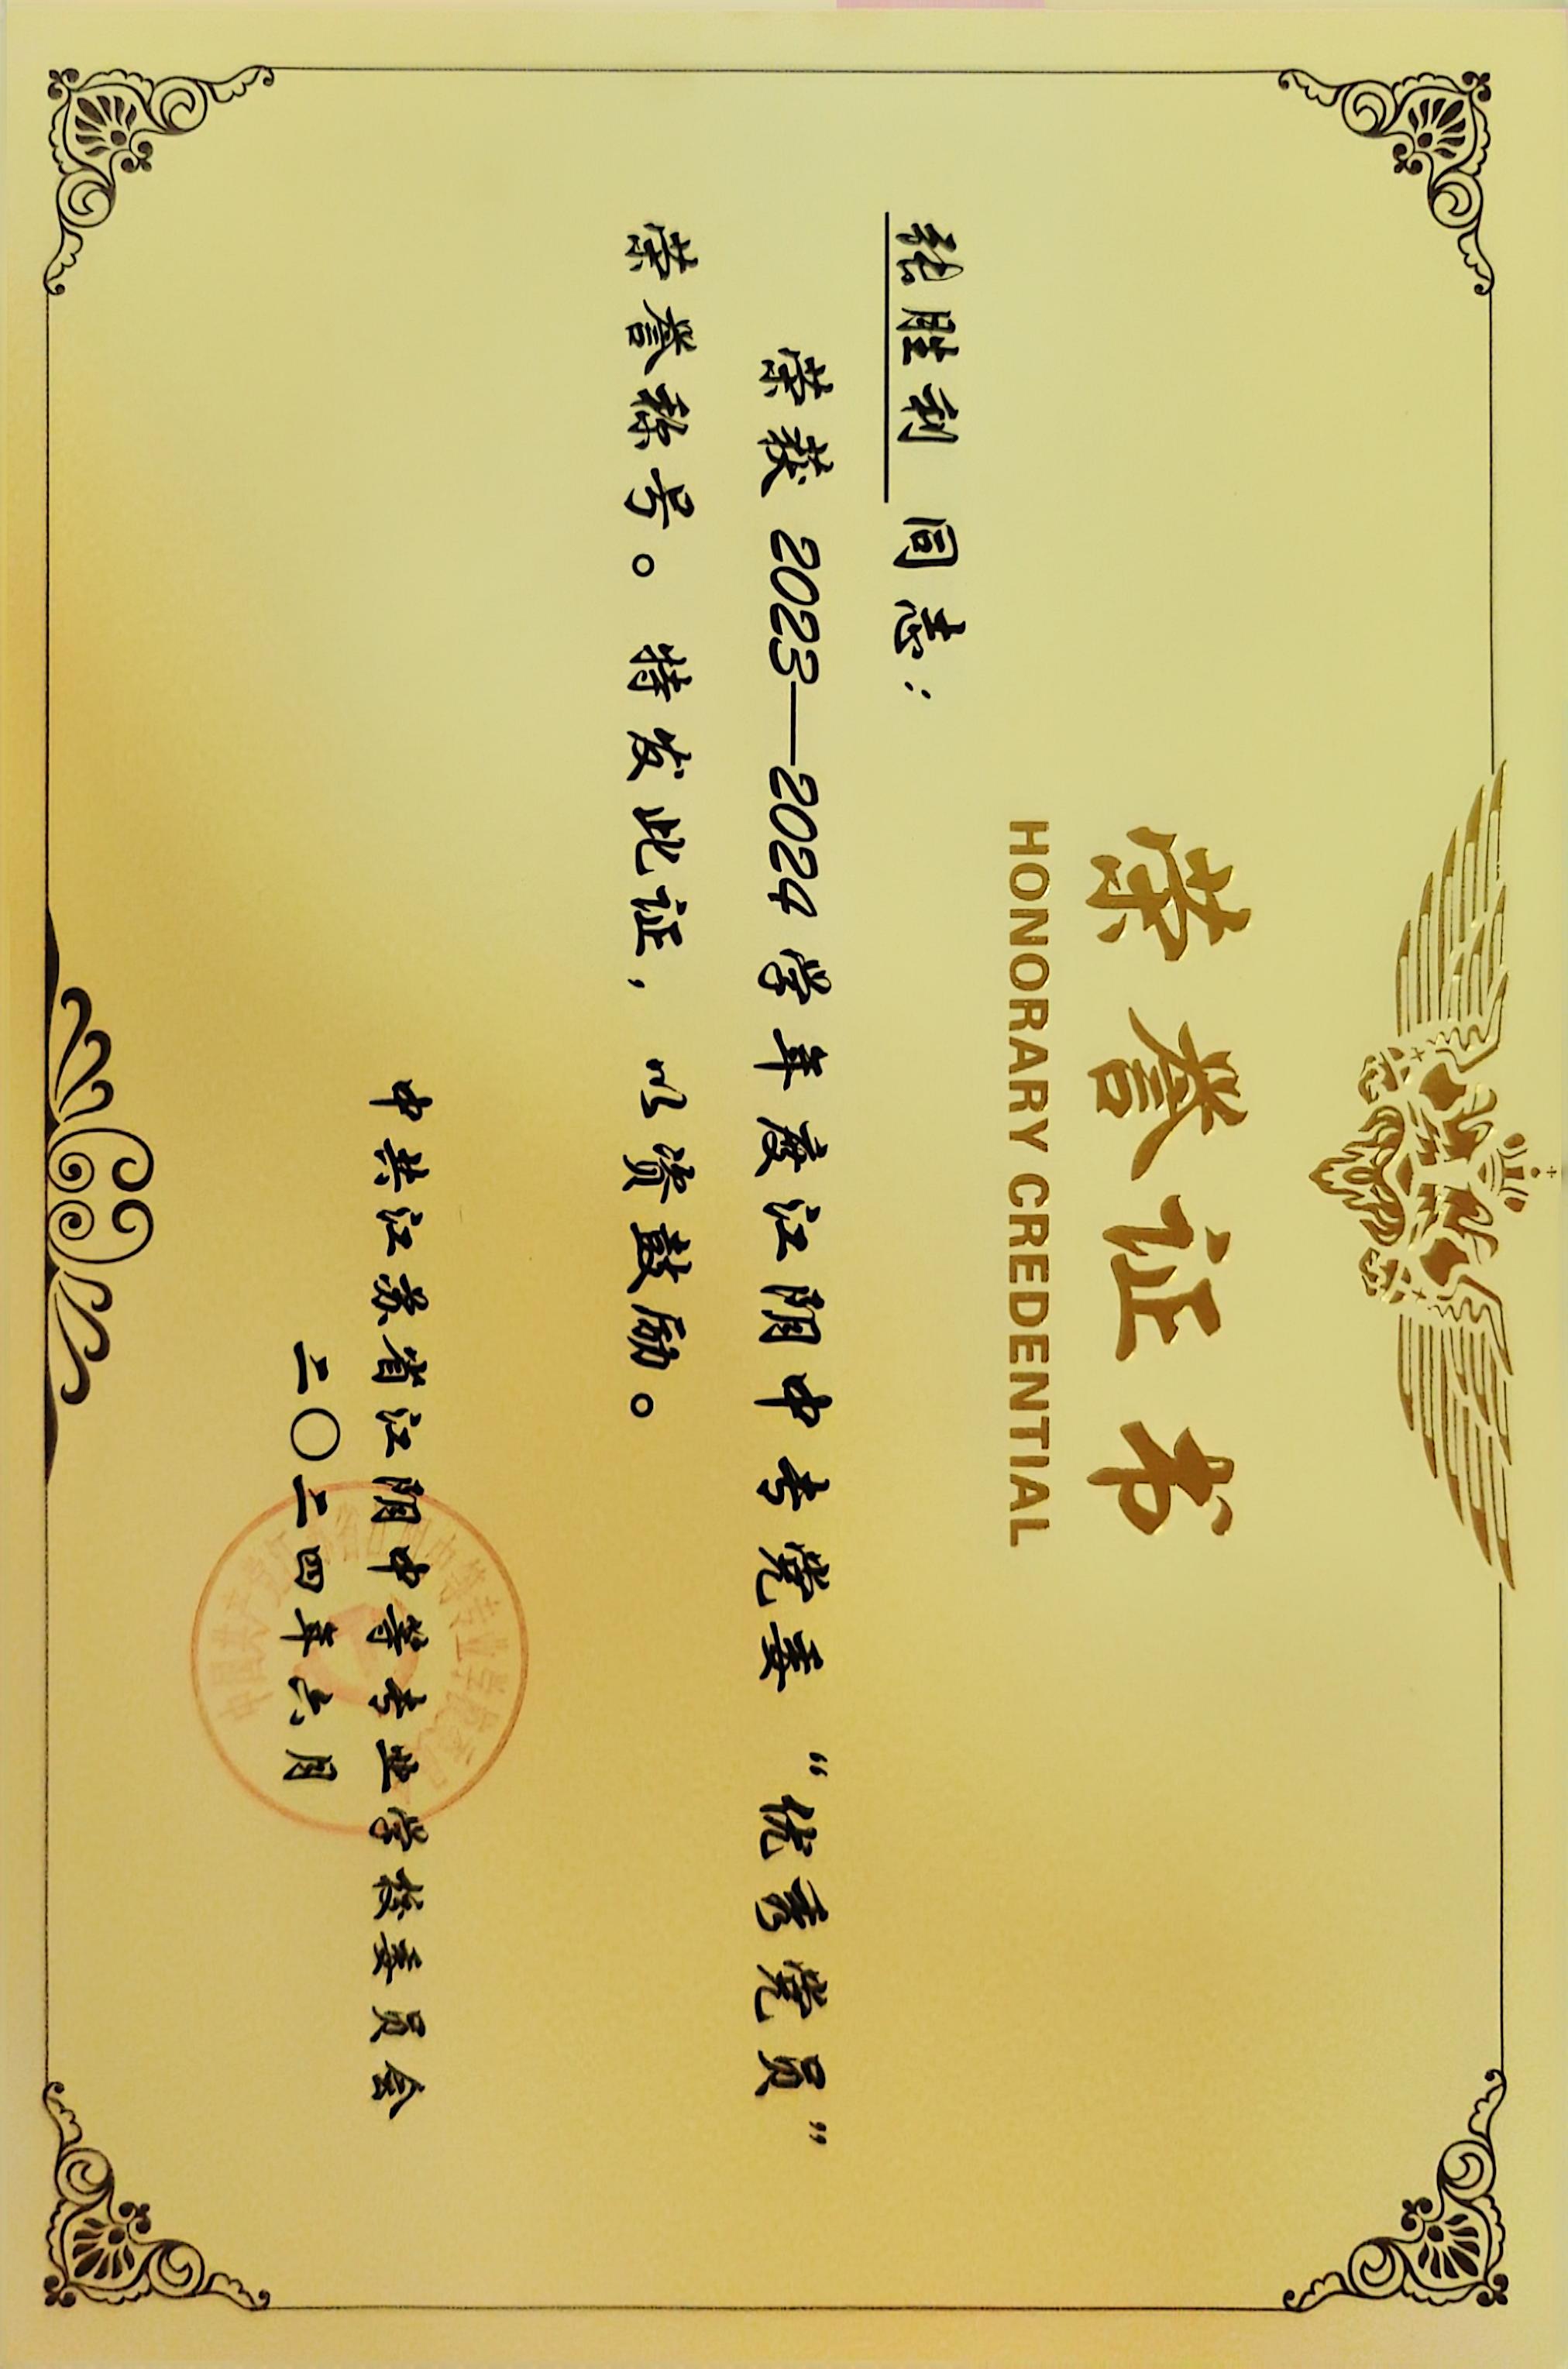 荣誉证书
HONORARY CREDENTIAL
张胜利 同志：
荣获 2023—2024 学年度江阴中专党委“优秀党员”
荣誉称号。特发此证，以资鼓励。
中共江苏省江阴中等专业学校委员会
二〇二四年六月